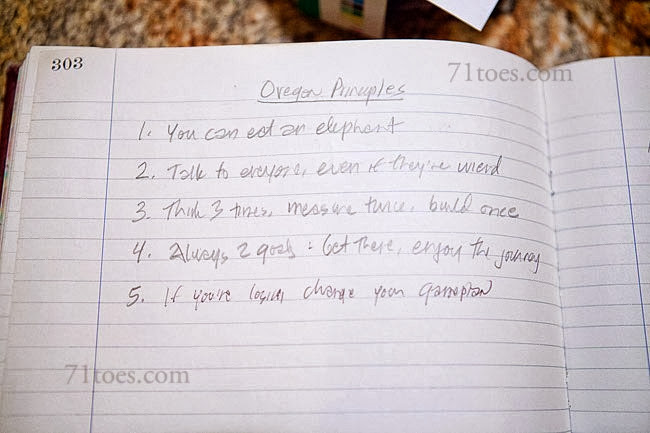 303
71toes.com
Oregon Principles
1. You can eat an elephant
2. Talk to everyone, even if they're wierd
3. Think 3 times, measure twice, build once
4. Always 2 goals : Get there, enjoy the journey
5. If you're losing change your gameplan
71toes.com